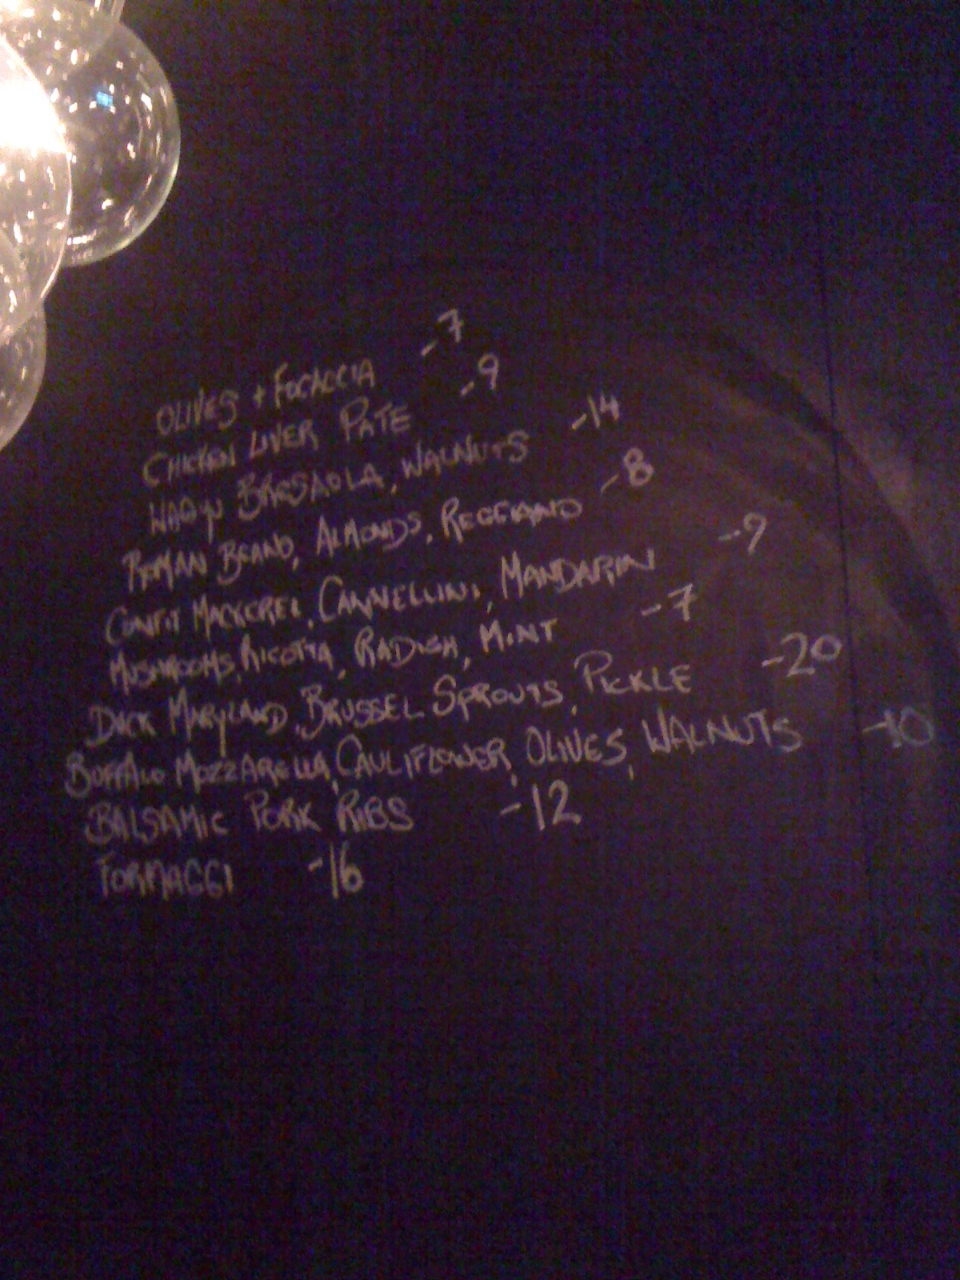 OLIVES + FOCACCIA -7
CHICKEN LIVER PATE -9
WAGYU BRESAOLA, WALNUTS -14
ROMAN BEANS, ALMONDS, REGGIANO -8
CONFIT MACKEREL, CANNELLINI, MANDARIN -9
MUSHROOMS, RICOTTA, RADISH, MINT -7
DUCK MARYLAND, BRUSSEL SPROUTS, PICKLE -20
BUFFALO MOZZARELLA, CAULIFLOWER, OLIVES, WALNUTS -10
BALSAMIC PORK RIBS -12
FORMAGGI -16